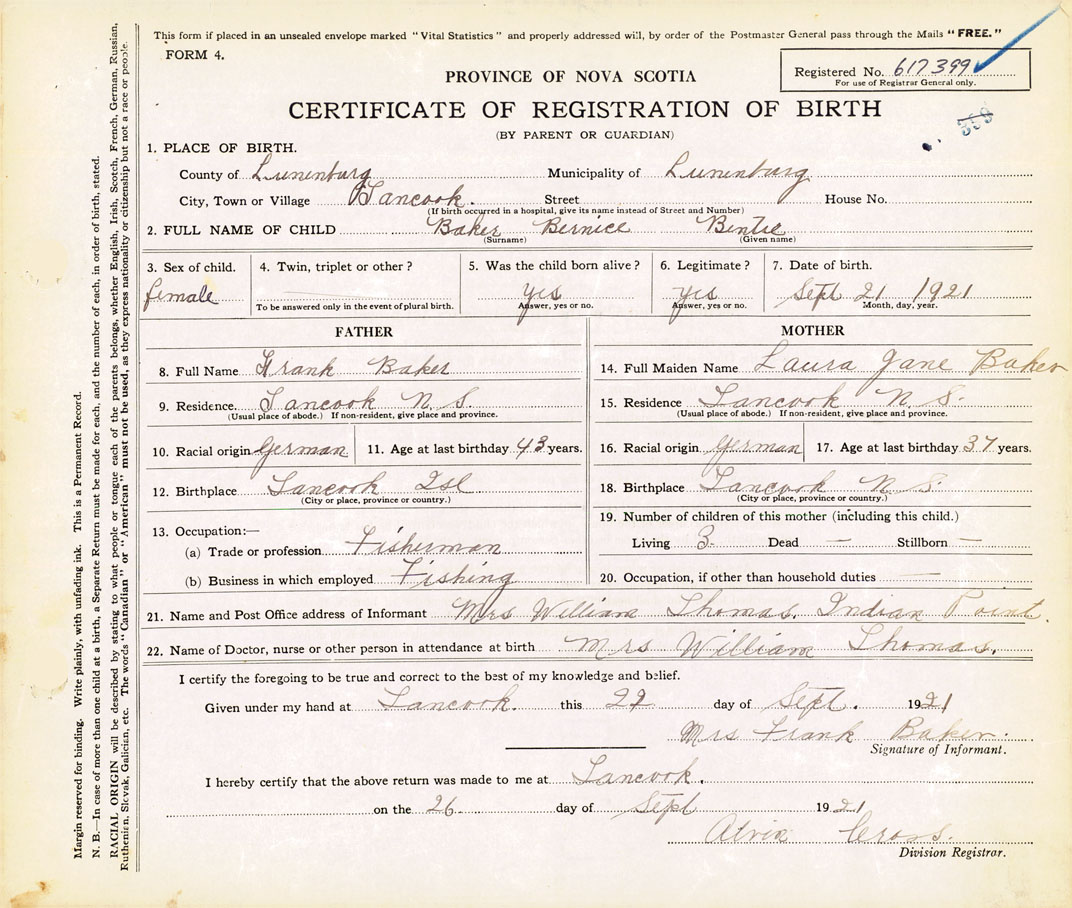 This form if placed in an unsealed envelope marked "Vital Statistics" and properly addressed will, by order of the Postmaster General pass through the Mails "FREE."
FORM 4.
Registered No. 617399
For use of Registrar General only.
PROVINCE OF NOVA SCOTIA
CERTIFICATE OF REGISTRATION OF BIRTH
399
(BY PARENT OR GUARDIAN)
1. PLACE OF BIRTH.
County of Lunenburg Municipality of Lunenburg
City, Town or Village Tancook. Street House No.
(If birth occurred in a hospital, give its name instead of Street and Number)
2. FULL NAME OF CHILD Baker Bernice Bentie
(Surname) (Given name)
3. Sex of child. 4. Twin, triplet or other? 5. Was the child born alive? 6. Legitimate? 7. Date of birth.
female yes yes Sept 21 1921
To be answered only in the event of plural birth. Answer, yes or no. Answer, yes or no. Month, day, year.
FATHER MOTHER
8. Full Name Frank Baker 14. Full Maiden Name Laura Jane Baker
9. Residence. Tancook N.S. 15. Residence Tancook N.S.
(Usual place of abode.) If non-resident, give place and province. (Usual place of abode.) If non-resident, give place and province.
10. Racial origin German 11. Age at last birthday 43 years. 16. Racial origin German 17. Age at last birthday 37 years.
12. Birthplace Tancook Isl 18. Birthplace Tancook N.S.
(City or place, province or country.) (City or place, province or country.)
13. Occupation:— 19. Number of children of this mother (including this child.)
(a) Trade or profession Fisherman Living 3. Dead — Stillborn —
(b) Business in which employed Fishing 20. Occupation, if other than household duties —
21. Name and Post Office address of Informant Mrs William Thomas. Indian Point.
22. Name of Doctor, nurse or other person in attendance at birth Mrs William Thomas.
I certify the foregoing to be true and correct to the best of my knowledge and belief.
Given under my hand at Tancook. this 22 day of Sept. 1921
Mrs Frank Baker.
Signature of Informant.
I hereby certify that the above return was made to me at Tancook.
on the 26 day of Sept 1921
Alvin Cross.
Division Registrar.
Margin reserved for binding. Write plainly, with unfading ink. This is a Permanent Record.
N. B.—In case of more than one child at a birth, a Separate Return must be made for each, and the number of each, in order of birth, stated.
RACIAL ORIGIN will be described by stating to what people or tongue each of the parents belongs, whether English, Irish, Scotch, French, German, Russian,
Ruthenien, Slovak, Galician, etc. The words "Canadian" or "American" must not be used, as they express nationality or citizenship but not a race or people.